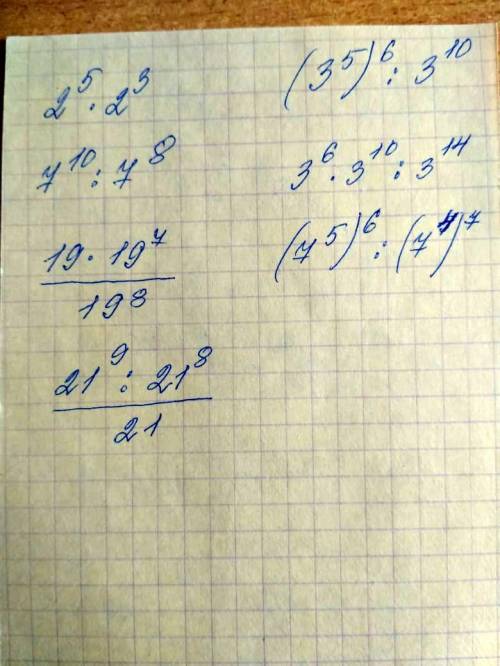 2⁵ · 2³
7¹⁰ : 7⁸
19 · 19⁷
19⁸
21⁹ : 21⁸
21
(3⁵)⁶ : 3¹⁰
3⁶ · 3¹⁰ : 3¹⁴
(7⁵)⁶ : (7⁴)⁷